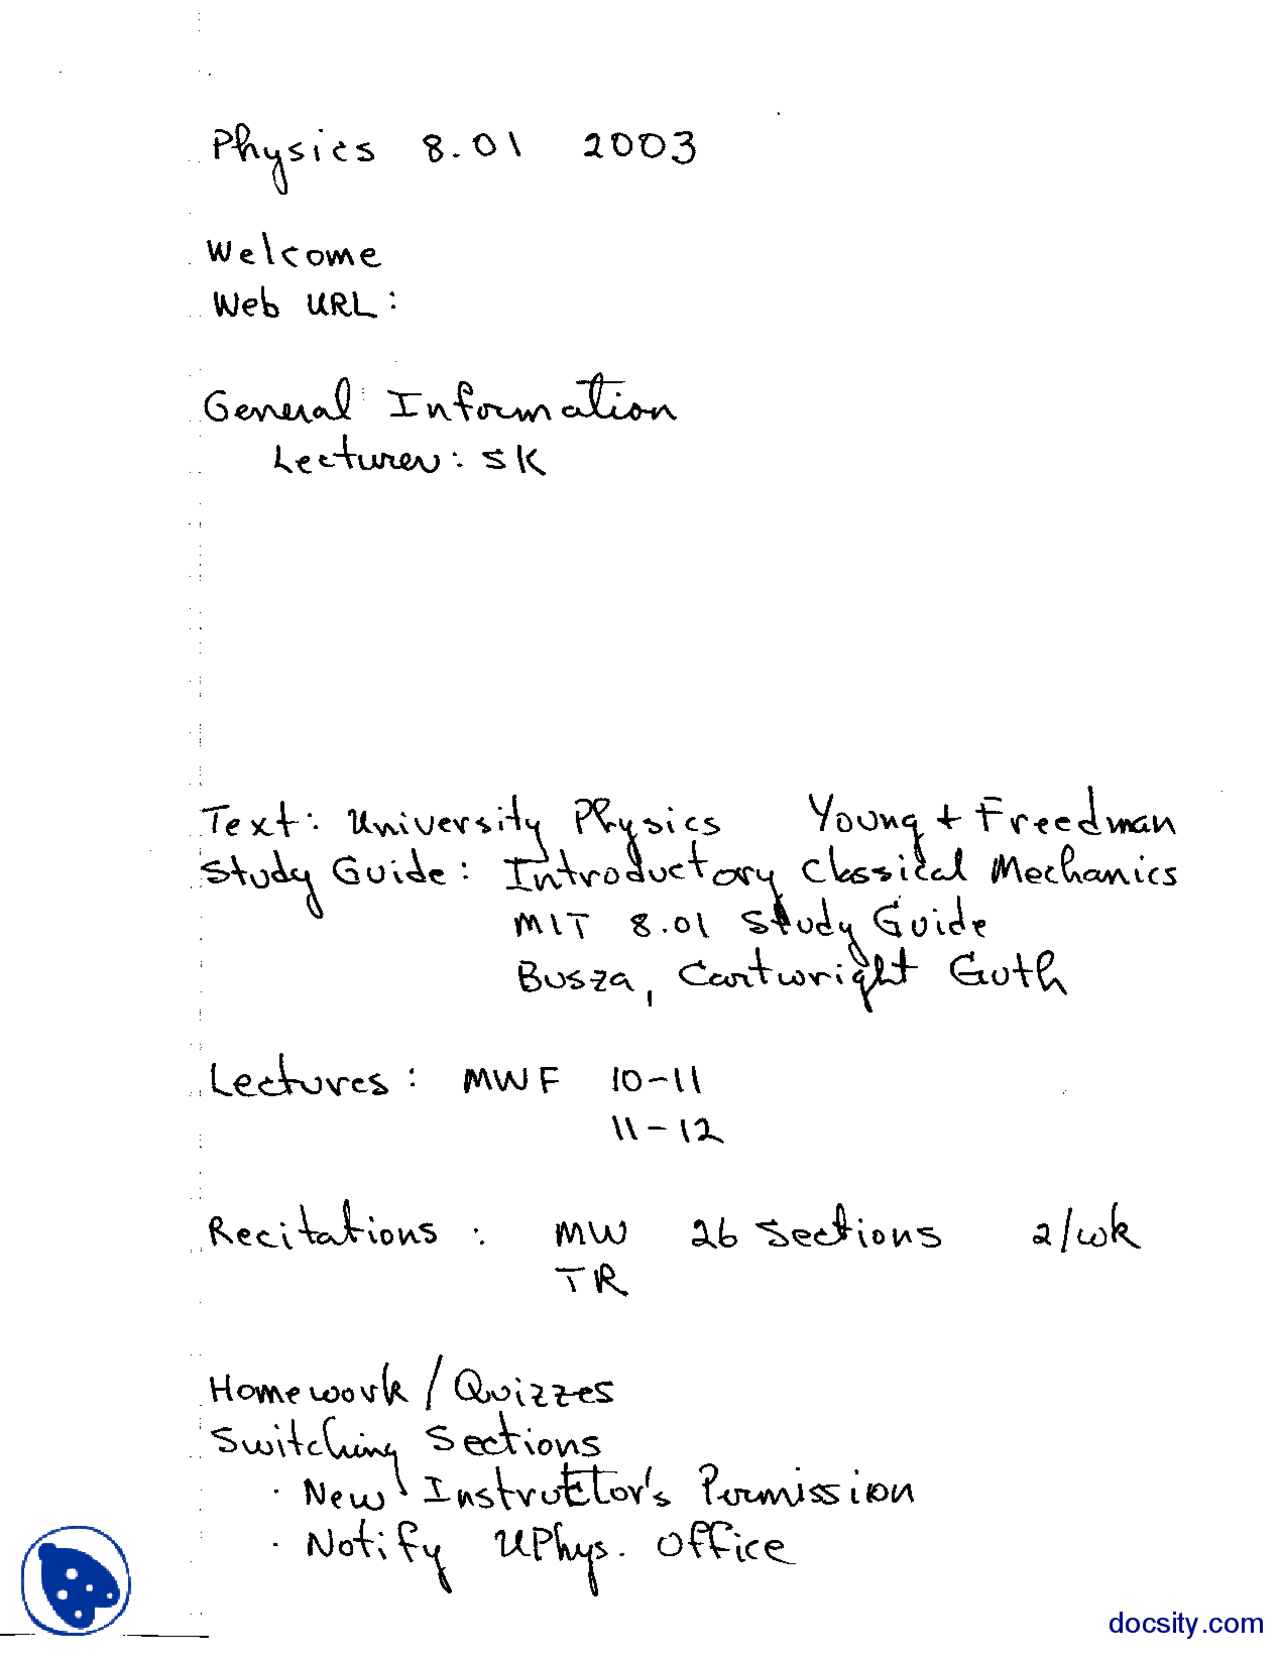 Physics 8.01 2003
Welcome
Web URL:
General Information
Lecturer: SK
Text: University Physics Young + Freedman
Study Guide: Introductory Classical Mechanics
MIT 8.01 Study Guide
Busza, Cartwright Guth
Lectures: MWF 10-11
11-12
Recitations: MW 26 Sections 2/wk
TR
Homework / Quizzes
Switching Sections
· New Instructor's Permission
· Notify UPhys. Office
docsity.com